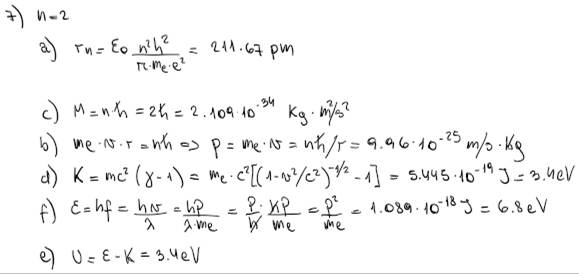 7) n=2
a) rn = ε0 n²h²/π·me·e² = 211.67 pm
c) M = n·ħ = 2ħ = 2.109·10⁻³⁴ Kg·m²/s²
b) me·v·r = nħ => p = me·v = nħ/r = 9.96·10⁻²⁵ m/s·Kg
d) K = mc² (γ-1) = me·c²[(1-v²/c²)^-1/2 -1] = 5.445·10⁻¹⁹ J = 3.4eV
f) ε = hf = hv/λ = hp/λ·me = p/h · hp/me = p²/me = 1.089·10⁻¹⁸ J = 6.8eV
e) U = ε - K = 3.4eV